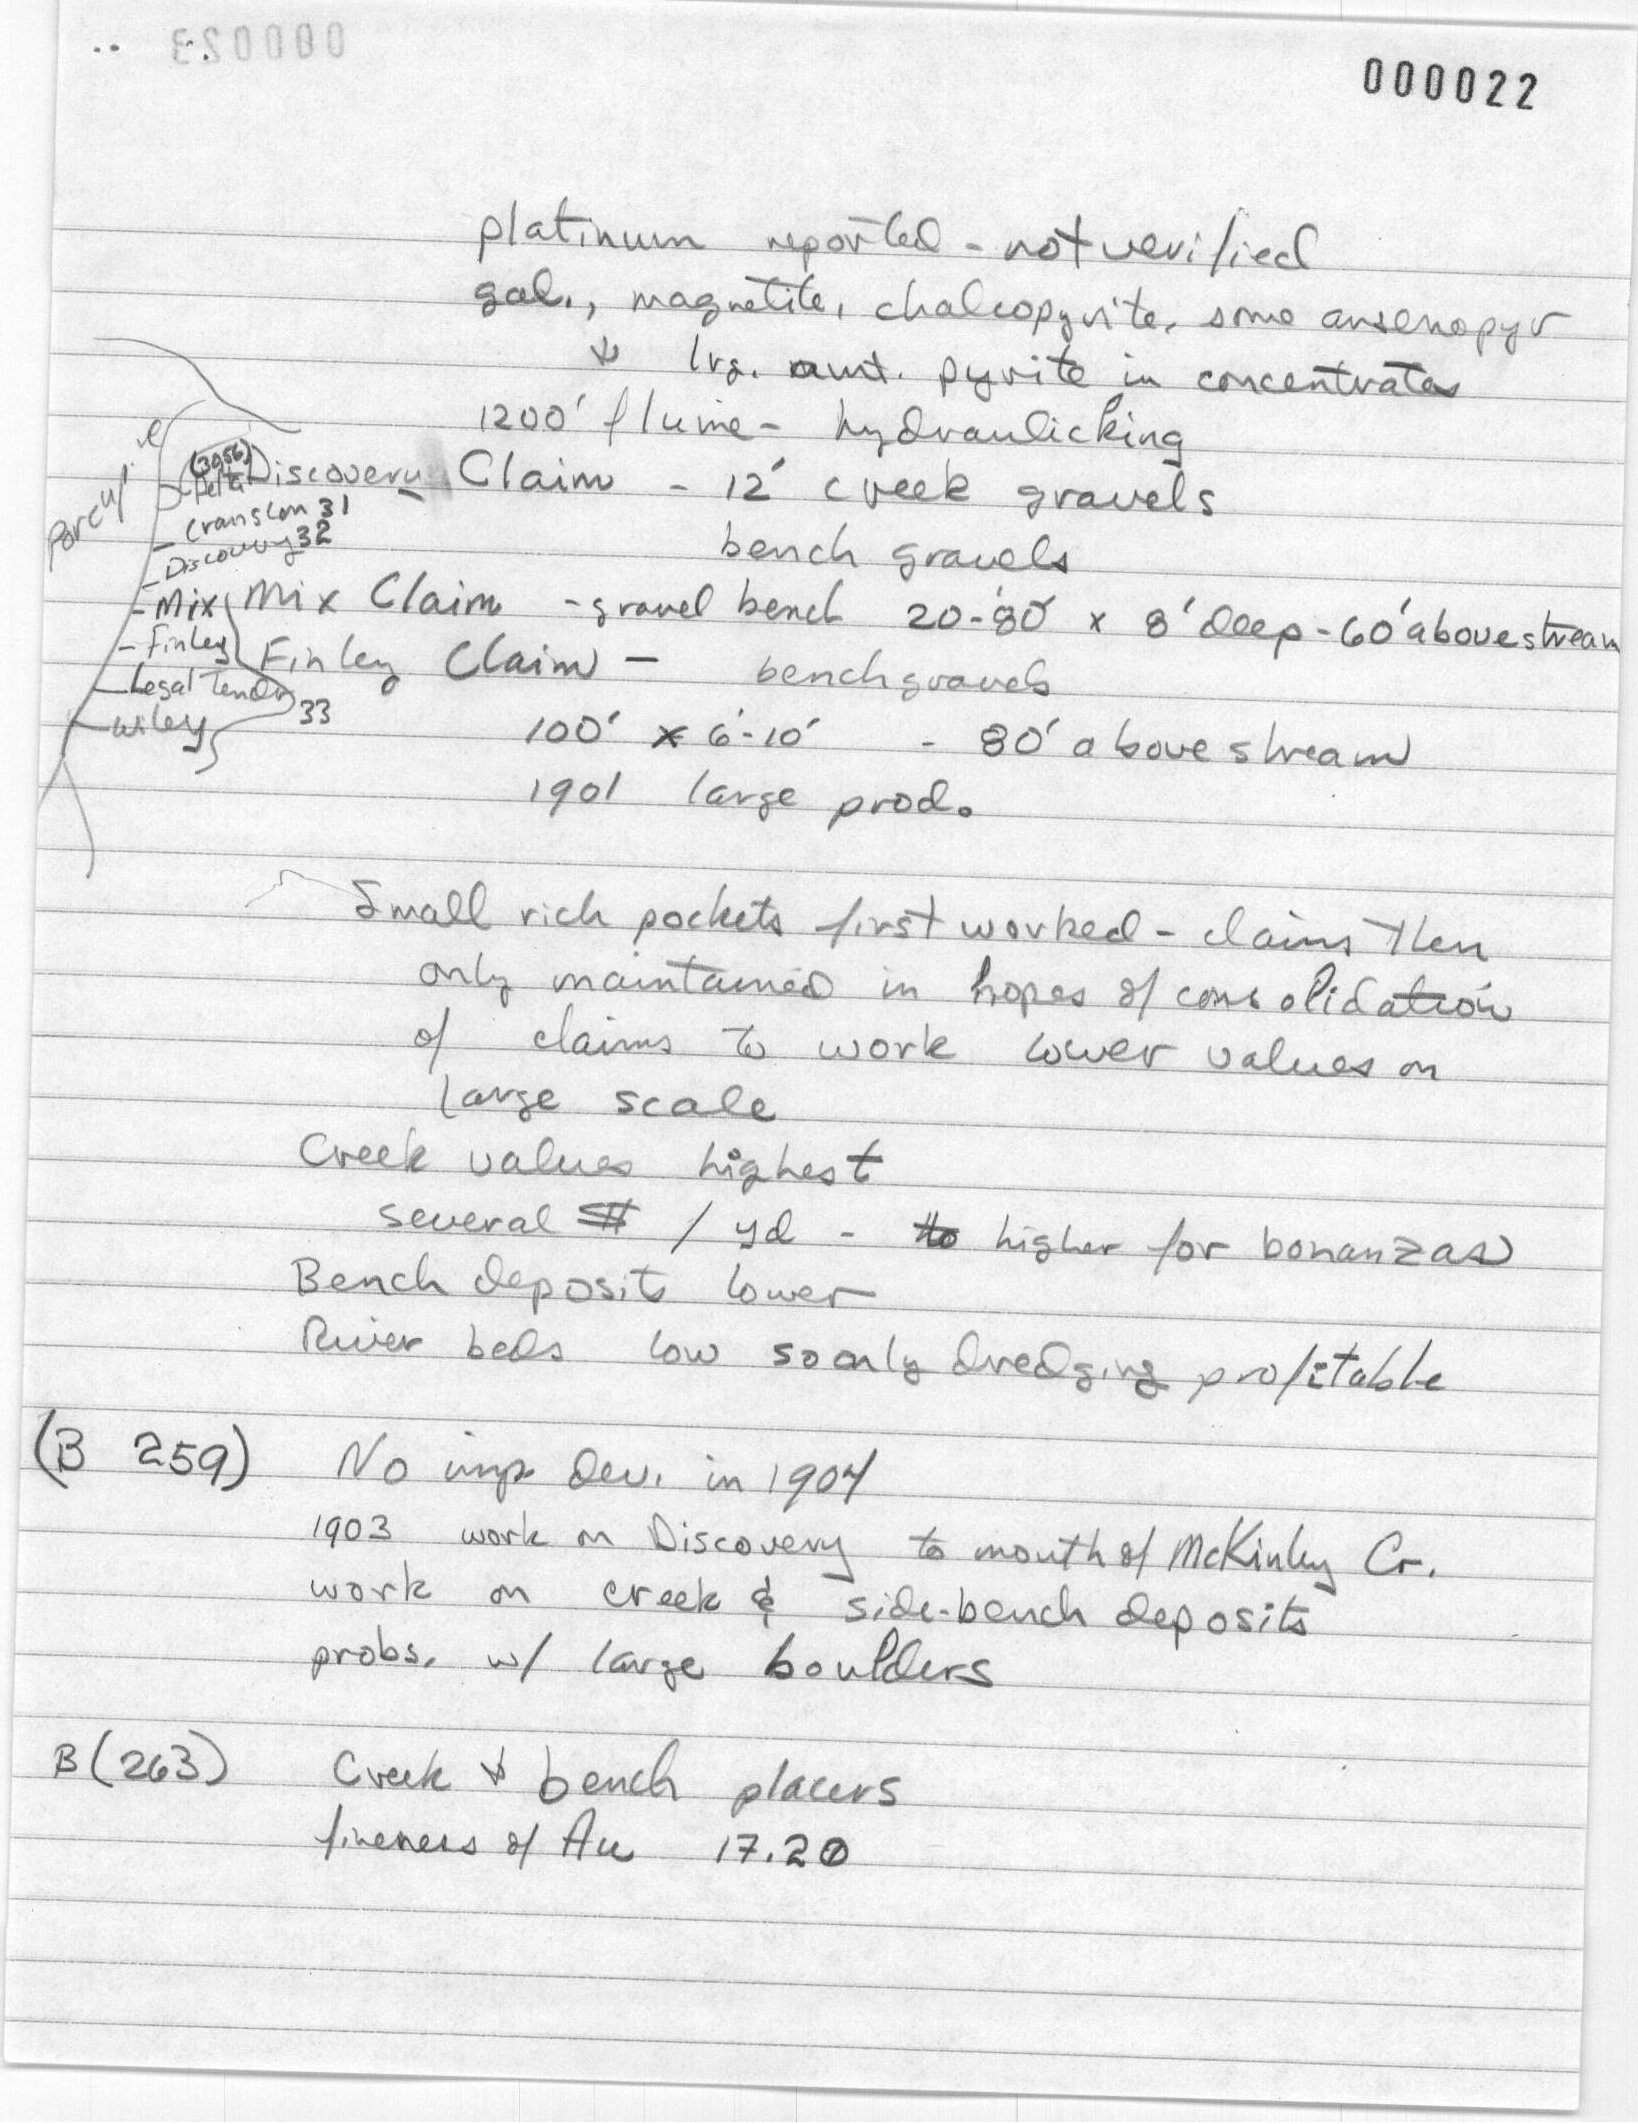 000022
platinum reported - not verified
gal., magnetite, chalcopyrite, some arsenopyr
& lrg. amt. pyrite in concentrates
1200' flume - hydraulicking
Discovery Claim - 12' creek gravels
bench gravels
Mix Claim - gravel bench 20-80' x 8' deep - 60' above stream
Finley Claim - bench gravels
100' x 6'-10' - 80' above stream
1901 large prod.
Porcu
(3056)
Delta
- Cranston 31
- Discovery 32
- Mix
- Finley
- Legal Tender
33
- Wiley
Small rich pockets first worked - claims then
only maintained in hopes of consolidation
of claims to work lower values on
large scale
Creek values highest
several $ / yd - higher for bonanzas
Bench deposits lower
River beds low so only dredging profitable
(B 259) No imp. dev. in 1904
1903 work on Discovery to mouth of McKinley Cr.
work on creek & side-bench deposits
probs. w/ large boulders
B (263) Creek & bench placers
fineness of Au 17.20